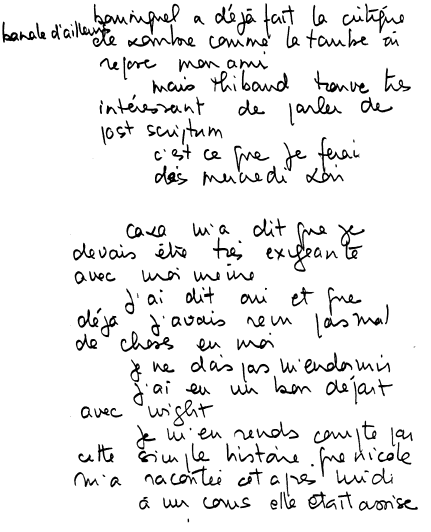 banale d'ailleurs
a déjà fait la critique
de sombre comme la tombe où
repose mon ami
mais thibaud trouve très
intéressant de parler de
post scriptum
c'est ce que je ferai
dès mercredi soir
m'a dit que je
devais être très exigeante
avec moi même
j'ai dit oui et que
déjà j'avais remu pas mal
de choses en moi
je ne dois pas m'endormir
j'ai eu un bon départ
avec wight
je m'en rends compte par
cette simple histoire que nicole
m'a racontée cet après midi
à un cours elle était assise